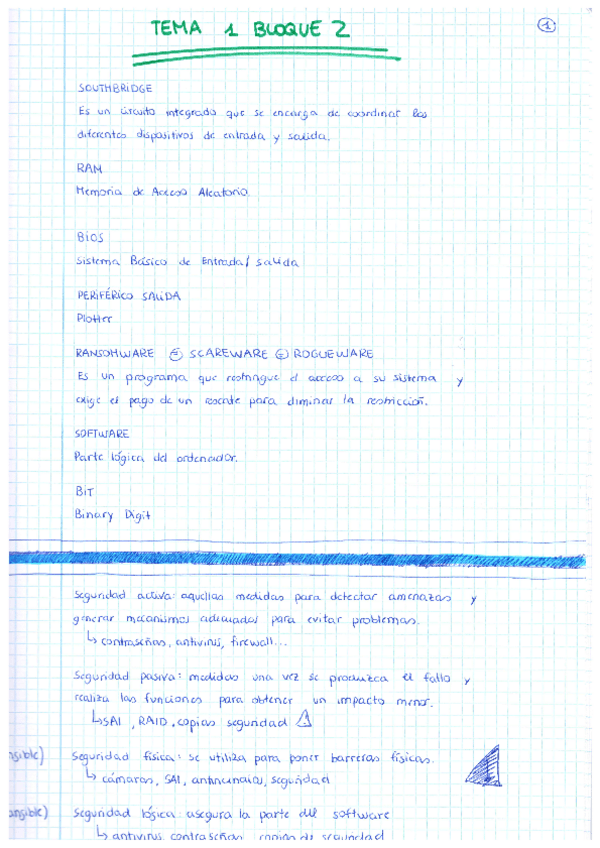 TEMA 1 BLOQUE 2
1
SOUTHBRIDGE
Es un circuito integrado que se encarga de coordinar los
diferentes dispositivos de entrada y salida.
RAM
Memoria de Acceso Aleatorio.
BiOS
Sistema Básico de Entrada/Salida
PERIFÉRICO SALIDA
Plotter
RANSOMWARE = SCAREWARE = ROGUEWARE
Es un programa que restringue el acceso a su sistema y
exige el pago de un rescate para eliminar la restricción.
SOFTWARE
Parte lógica del ordenador.
BiT
Binary Digit
Seguridad activa: aquellas medidas para detectar amenazas y
generar mecanismos adecuados para evitar problemas.
↳ contraseñas, antivirus, firewall...
Seguridad pasiva: medidas una vez se produzca el fallo y
realiza las funciones para obtener un impacto menor.
↳ SAI, RAID, copias seguridad ⚠
Seguridad física: se utiliza para poner barreras físicas.
↳ cámaras, SAI, antiincendios, seguridad
Seguridad lógica: asegura la parte del software
↳ antivirus, contraseñas, copias de seguridad